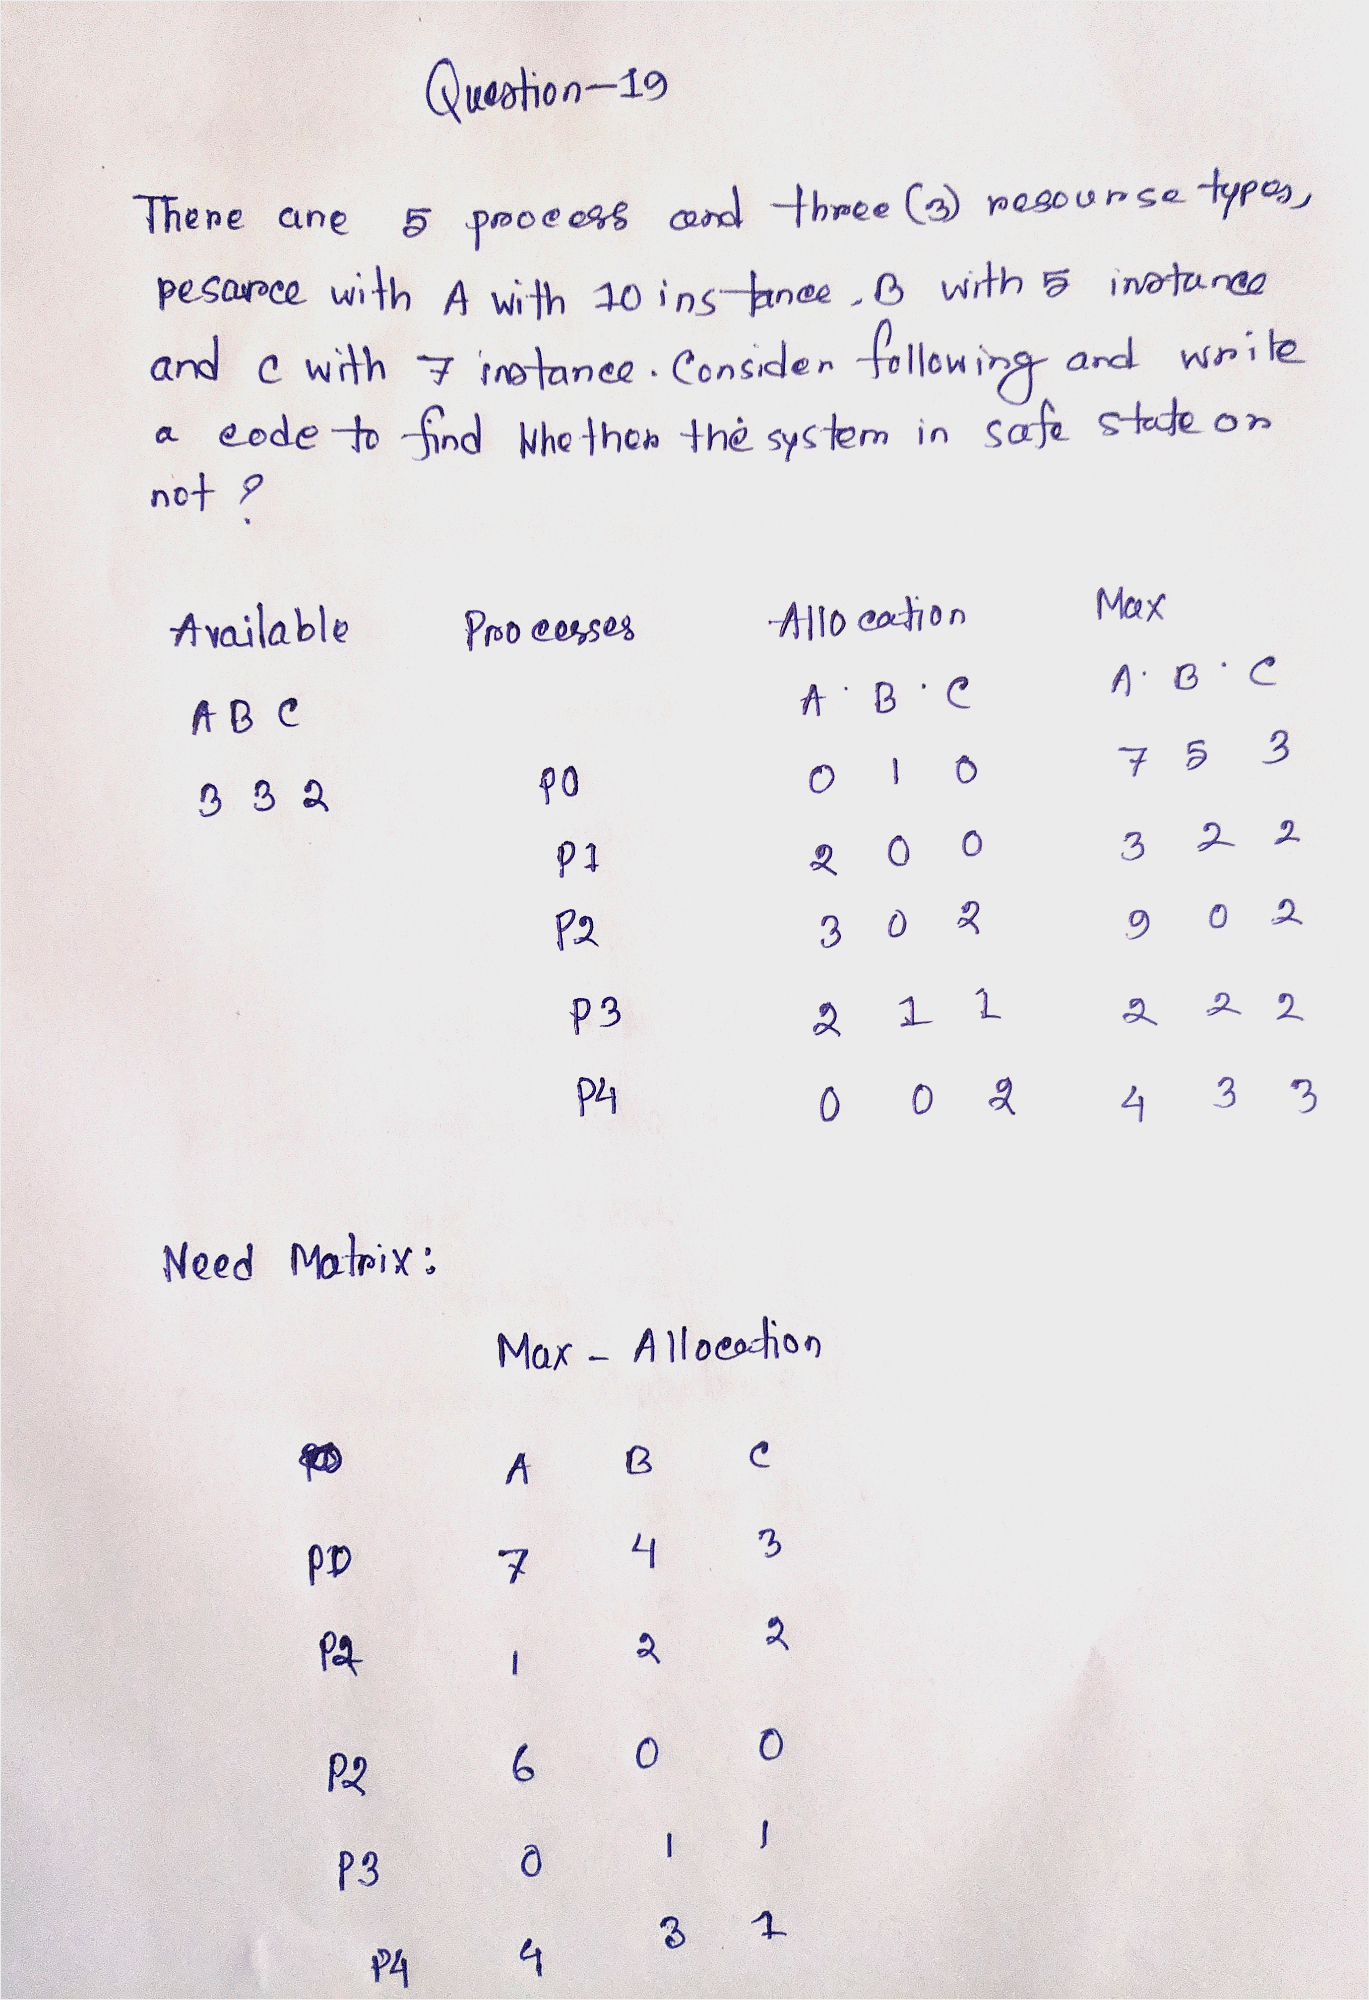 Question-19
There are 5 process and three (3) resourse types,
pesarce with A with 10 instance, B with 5 instance
and c with 7 instance. Consider following and write
a code to find Whether the system in safe state or
not ?
Available Processes Allocation Max
A B C A B C A B C
3 3 2 P0 0 1 0 7 5 3
P1 2 0 0 3 2 2
P2 3 0 2 9 0 2
P3 2 1 1 2 2 2
P4 0 0 2 4 3 3
Need Matrix:
Max - Allocation
A B C
P0 7 4 3
P2 1 2 2
P2 6 0 0
P3 0 1 1
P4 4 3 1